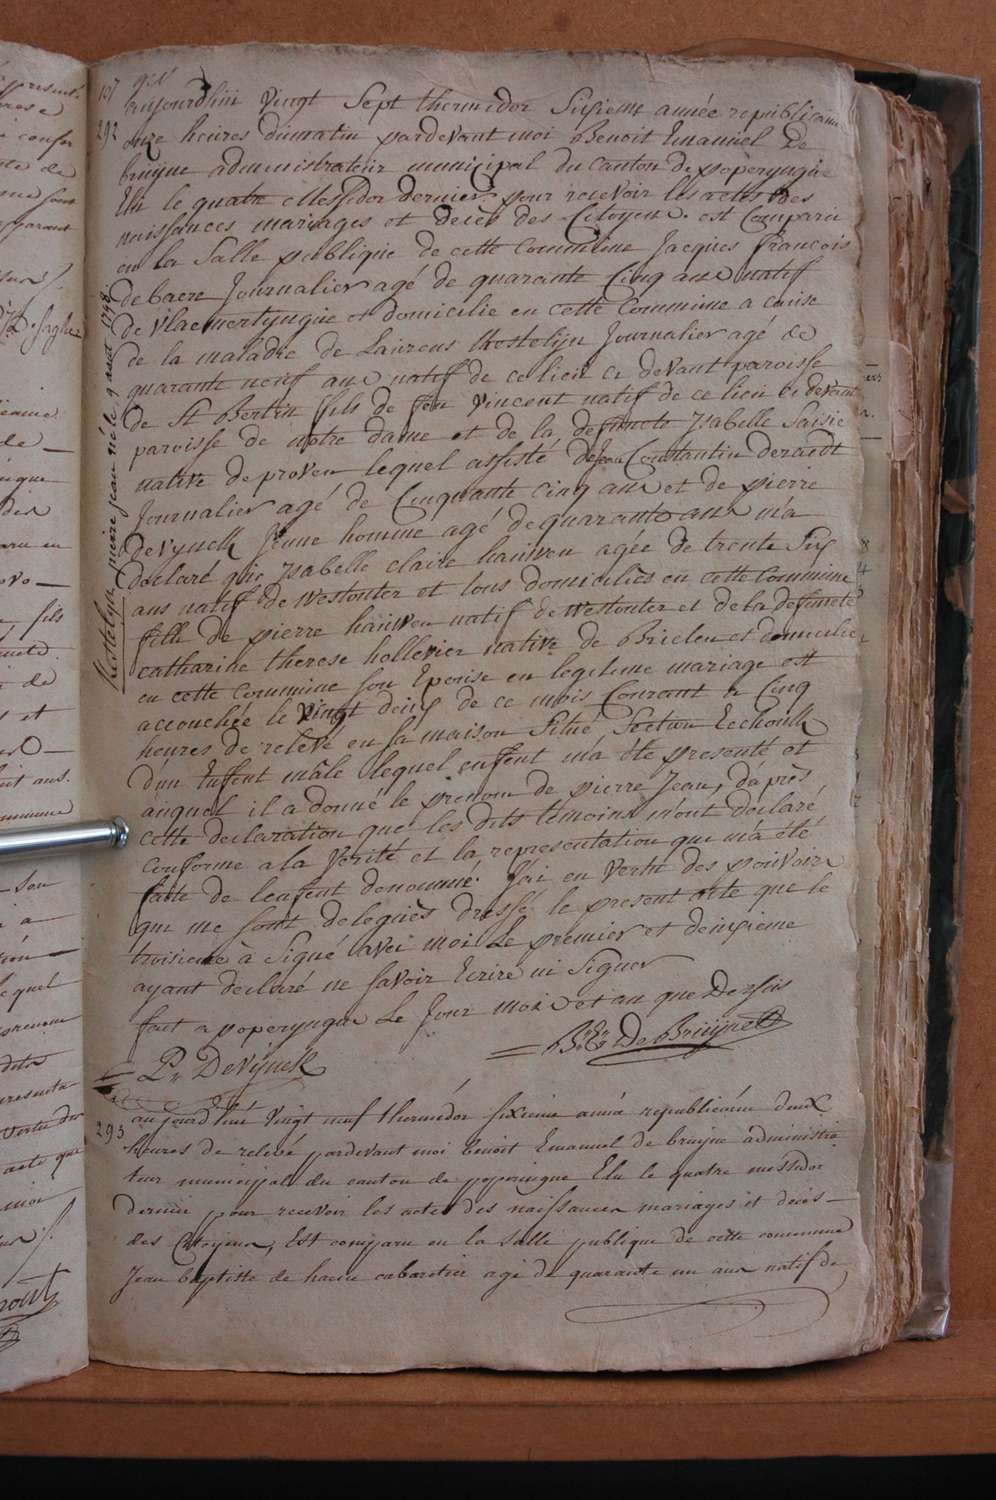 107
292
aujourdhui vingt Sept thermidor Sixieme année republicaine
onze heures dumatin pardevant moi Benoit Emanuel De
bruijne administrateur municipal du Canton de poperyngue
Elu le quatre Messidor dernier pour recevoir les actes des
naissances mariages et decès des Citoyens. est Comparu
en la Salle publique de cette Commune Jacques francois
debaere Journalier agé de quarante Cinq ans natif
de vlaemertyngue et domicilié en cette Commune a cause
de la maladie de Laurens Kestelijn Journalier agé de
quarante neuf ans natif de ce lieu ci devant paroisse
de St Bertin fils de feu vincent natif de ce lieu ci devant
paroisse de notre dame et de la defuncte Ysabelle Saisie
native de proven lequel assisté de Jean Constantin
Journalier agé de Cinquante cinq ans et de pierre
DeVynck Jeune homme agé de quarante ans m'a
declaré que Ysabelle claire hauwen agée de trente Six
ans natif de westouter et tous domiciliés en cette Commune
fille de pierre hauwen natif de westouter et dela defuncte
catharine therese hollevier native de Brielen et domicilié
en cette commune son Epouse en legitime mariage est
accouchée le vingt deux de ce mois Courant a Cinq
heures de relevé en sa maison Situé Section
d'un Enffent mâle lequel enffent m'a été presenté et
auquel il a donné le prenom de pierre Jean, d'après
cette declaration que les dits temoins m'ont déclaré
conforme a la verité et la representation qui m'a été
faite de l'enfent denommé. J'ai en vertu des pouvoirs
qui me sont delegués dressé le present acte que le
troisieme à Signé avec moi Le premier et deuxieme
ayant declaré ne savoir Ecrire ni Signer
fait a poperyngue Le Jour mois et an que Dessus
Pr DeVijnck
De Bruijne
Kestelyn pierre jean né le 9 aout 1798
293
aujourd'hui vingt neuf thermidor sixieme année republicaine deux
heures de relevé pardevant moi benoit Emanuel de bruijne administra
teur municipal du canton de poperingue Elu le quatre messidor
dernier pour recevoir les actes des naissances mariages et decès
des Citoyens, Est comparu en la salle publique de cette commune
Jean baptiste de haene cabaretier agé de quarante un ans natif de